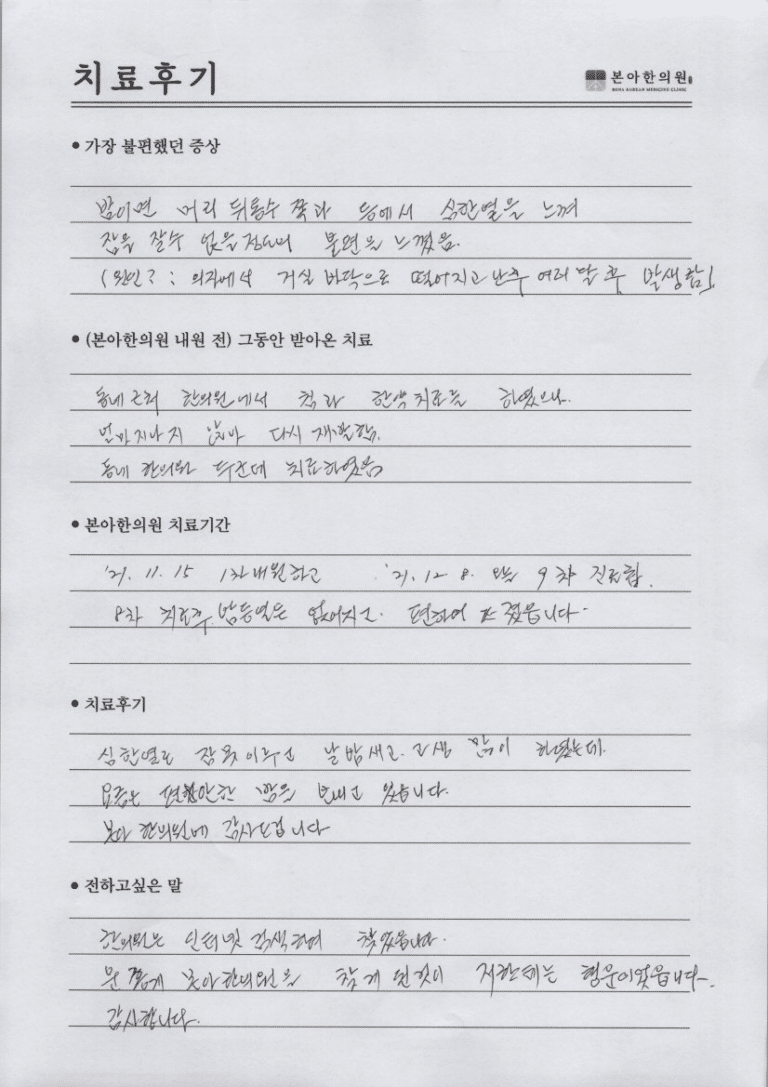 치료후기
본아한의원
BONA KOREAN MEDICINE CLINIC
• 가장 불편했던 증상
밤이면 머리 뒤통수 쪽과 등에서 심한열을 느껴
잠을 잘수 없을정도의 불면을 느꼈음.
(원인? : 의자에서 거실 바닥으로 떨어지고 난후 여러 달 후 발생함)
• (본아한의원 내원 전) 그동안 받아온 치료
동네 근처 한의원에서 침과 한약치료를 하였으나.
얼마 지나지 않아 다시 재발함.
동네 한의원 두군데 치료하였음
• 본아한의원 치료기간
'21. 11. 15 1차내원하고 '21. 12. 8. 9차 진료함.
8차 치료후 밤등열은 없어지고. 편하여 졌읍니다.
• 치료후기
심한열로 잠못이루고 날밤새고. 고생 많이 하였는데.
요즘은 편안한 밤을 보내고 있습니다.
본아 한의원에 감사드립니다
• 전하고싶은 말
한의원은 인터넷 검색하여 찾았읍니다.
본아한의원을 찾게 된것이 저한테는 행운이었읍니다.
감사합니다.